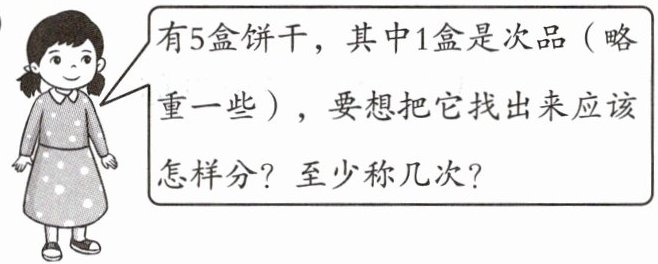 有5盒饼干，其中1盒是次品（略
重一些），要想把它找出来应该
怎样分？至少称几次？